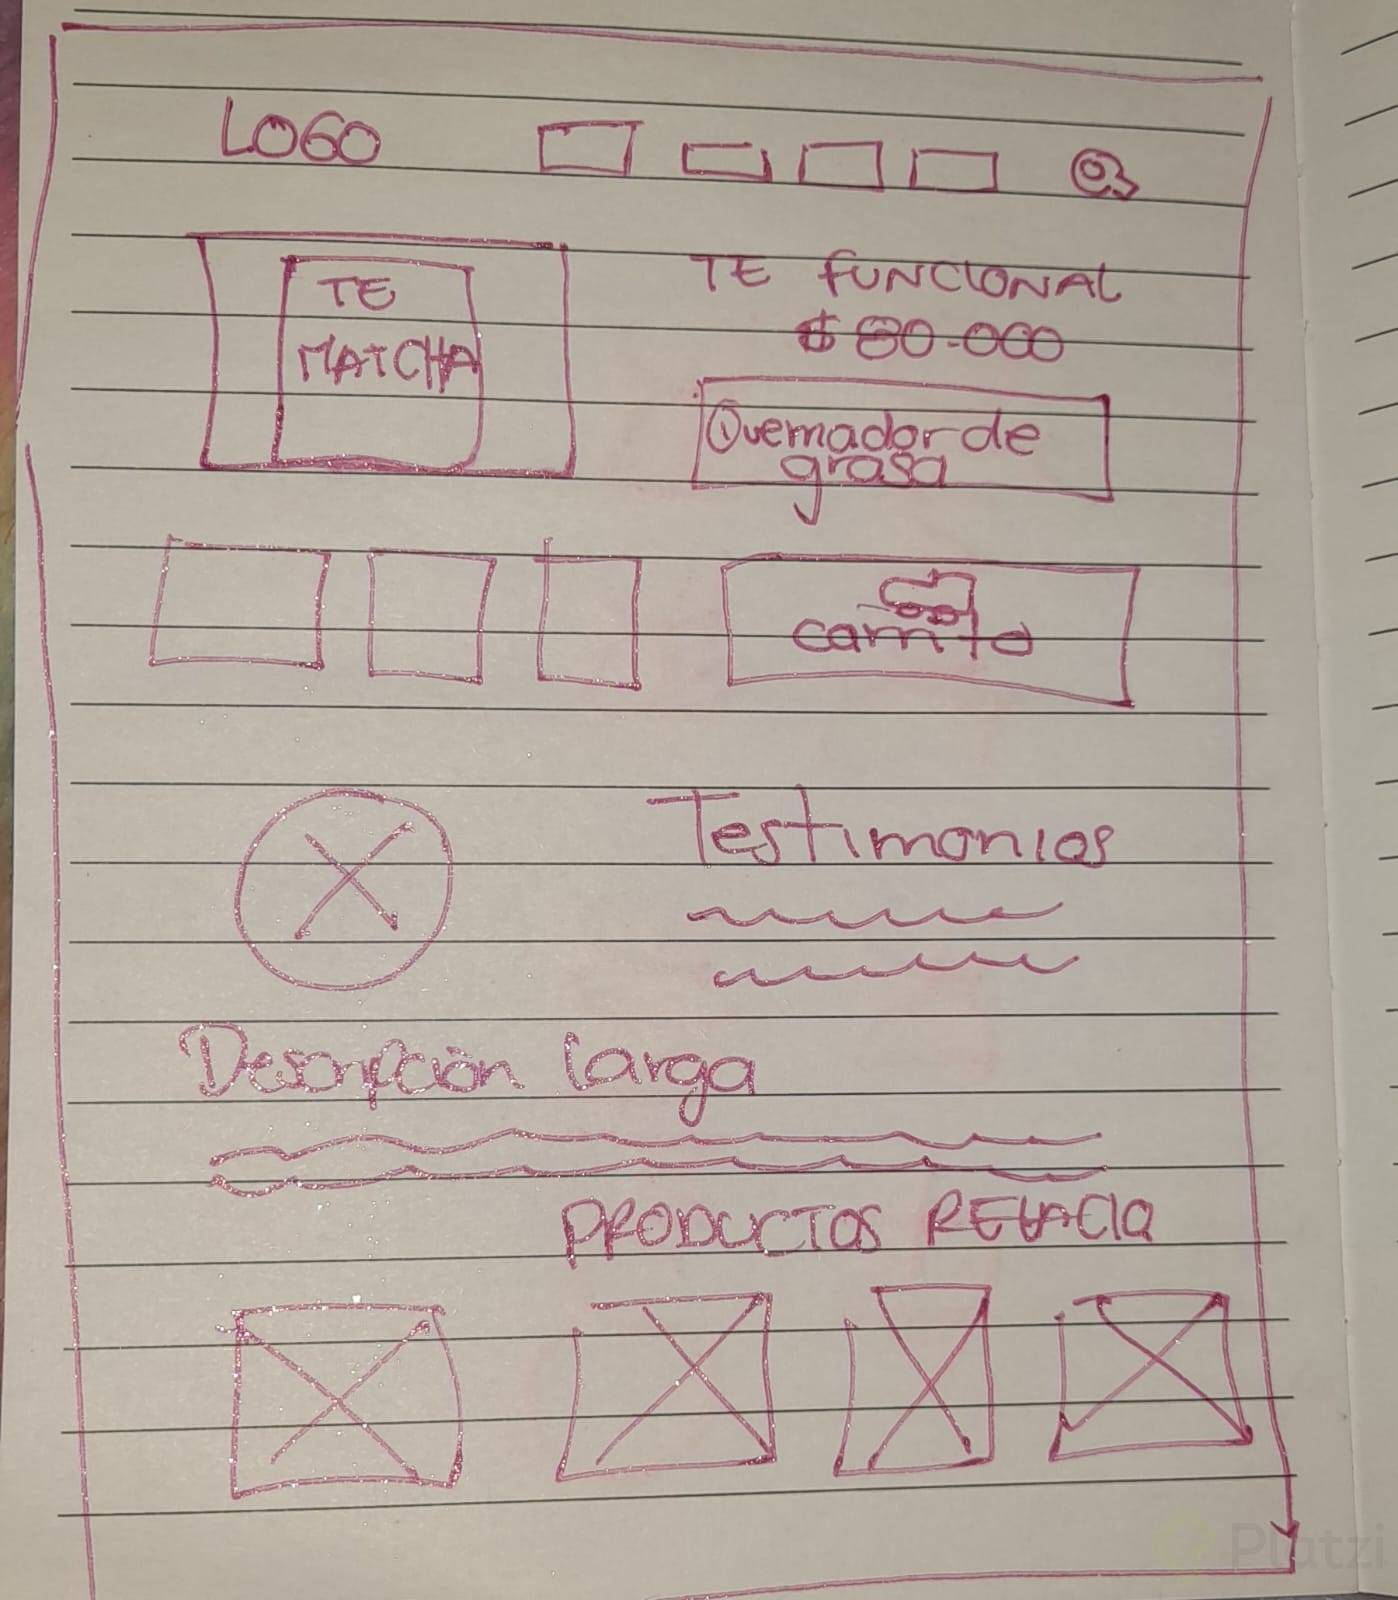 LOGO
TE
MATCHA
TE FUNCIONAL
$80.000
Quemador de
grasa
carrito
Testimonios
Descripción larga
PRODUCTOS RELACIO
Platzi